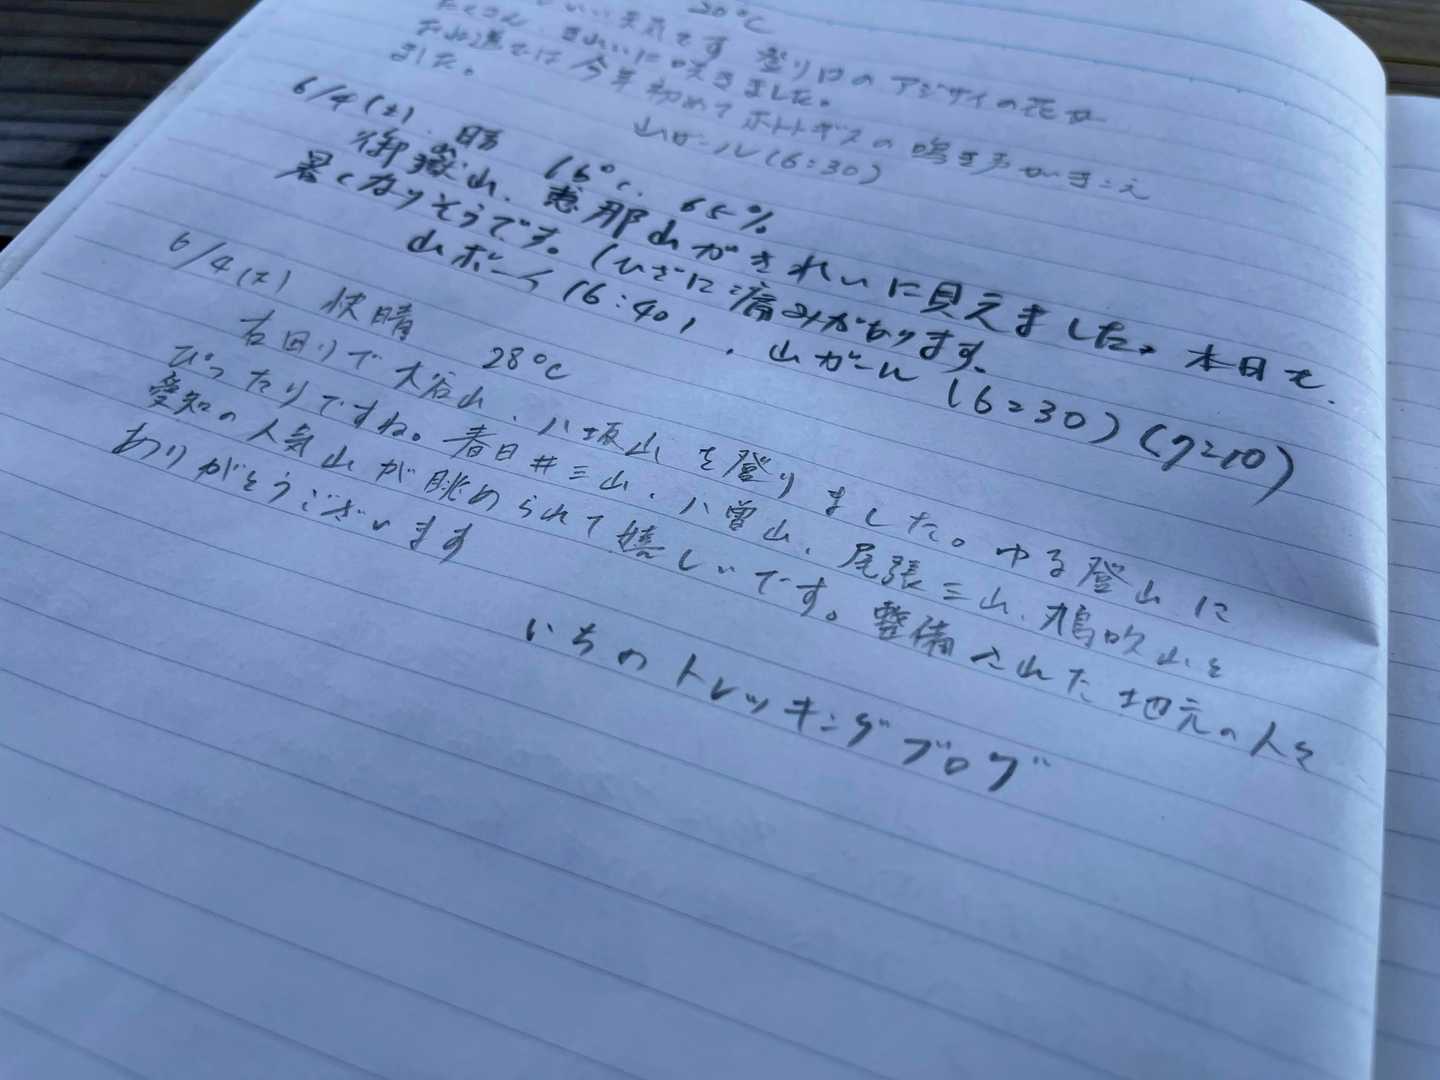 いい天気です 20℃
登り口のアジサイの花が
たくさん、きれいに咲きました。
では今年初めてホトトギスの鳴き声がきこえ
ました。
山ガール(6:30)
6/4(土) 晴 16℃. 65%
御嶽山、恵那山がきれいに見えました。本日も
暑くなりそうです。(ひざに痛みがあります。
山ボーイ(6:40)、山ガール(6:30)(7:10)
6/4(土) 快晴 28℃
右回りで大谷山、八坂山を登りました。ゆる登山に
ぴったりですね。春日井三山、八曽山、尾張三山、鳩吹山と
愛知の人気山が眺められて嬉しいです。整備された地元の人を
ありがとうございます
いちのトレッキングブログ